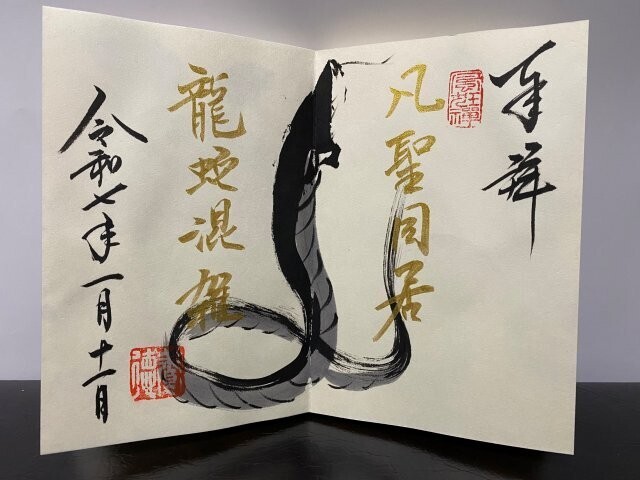 奉拝
凡聖同居
龍蛇混雑
令和七年一月十一日